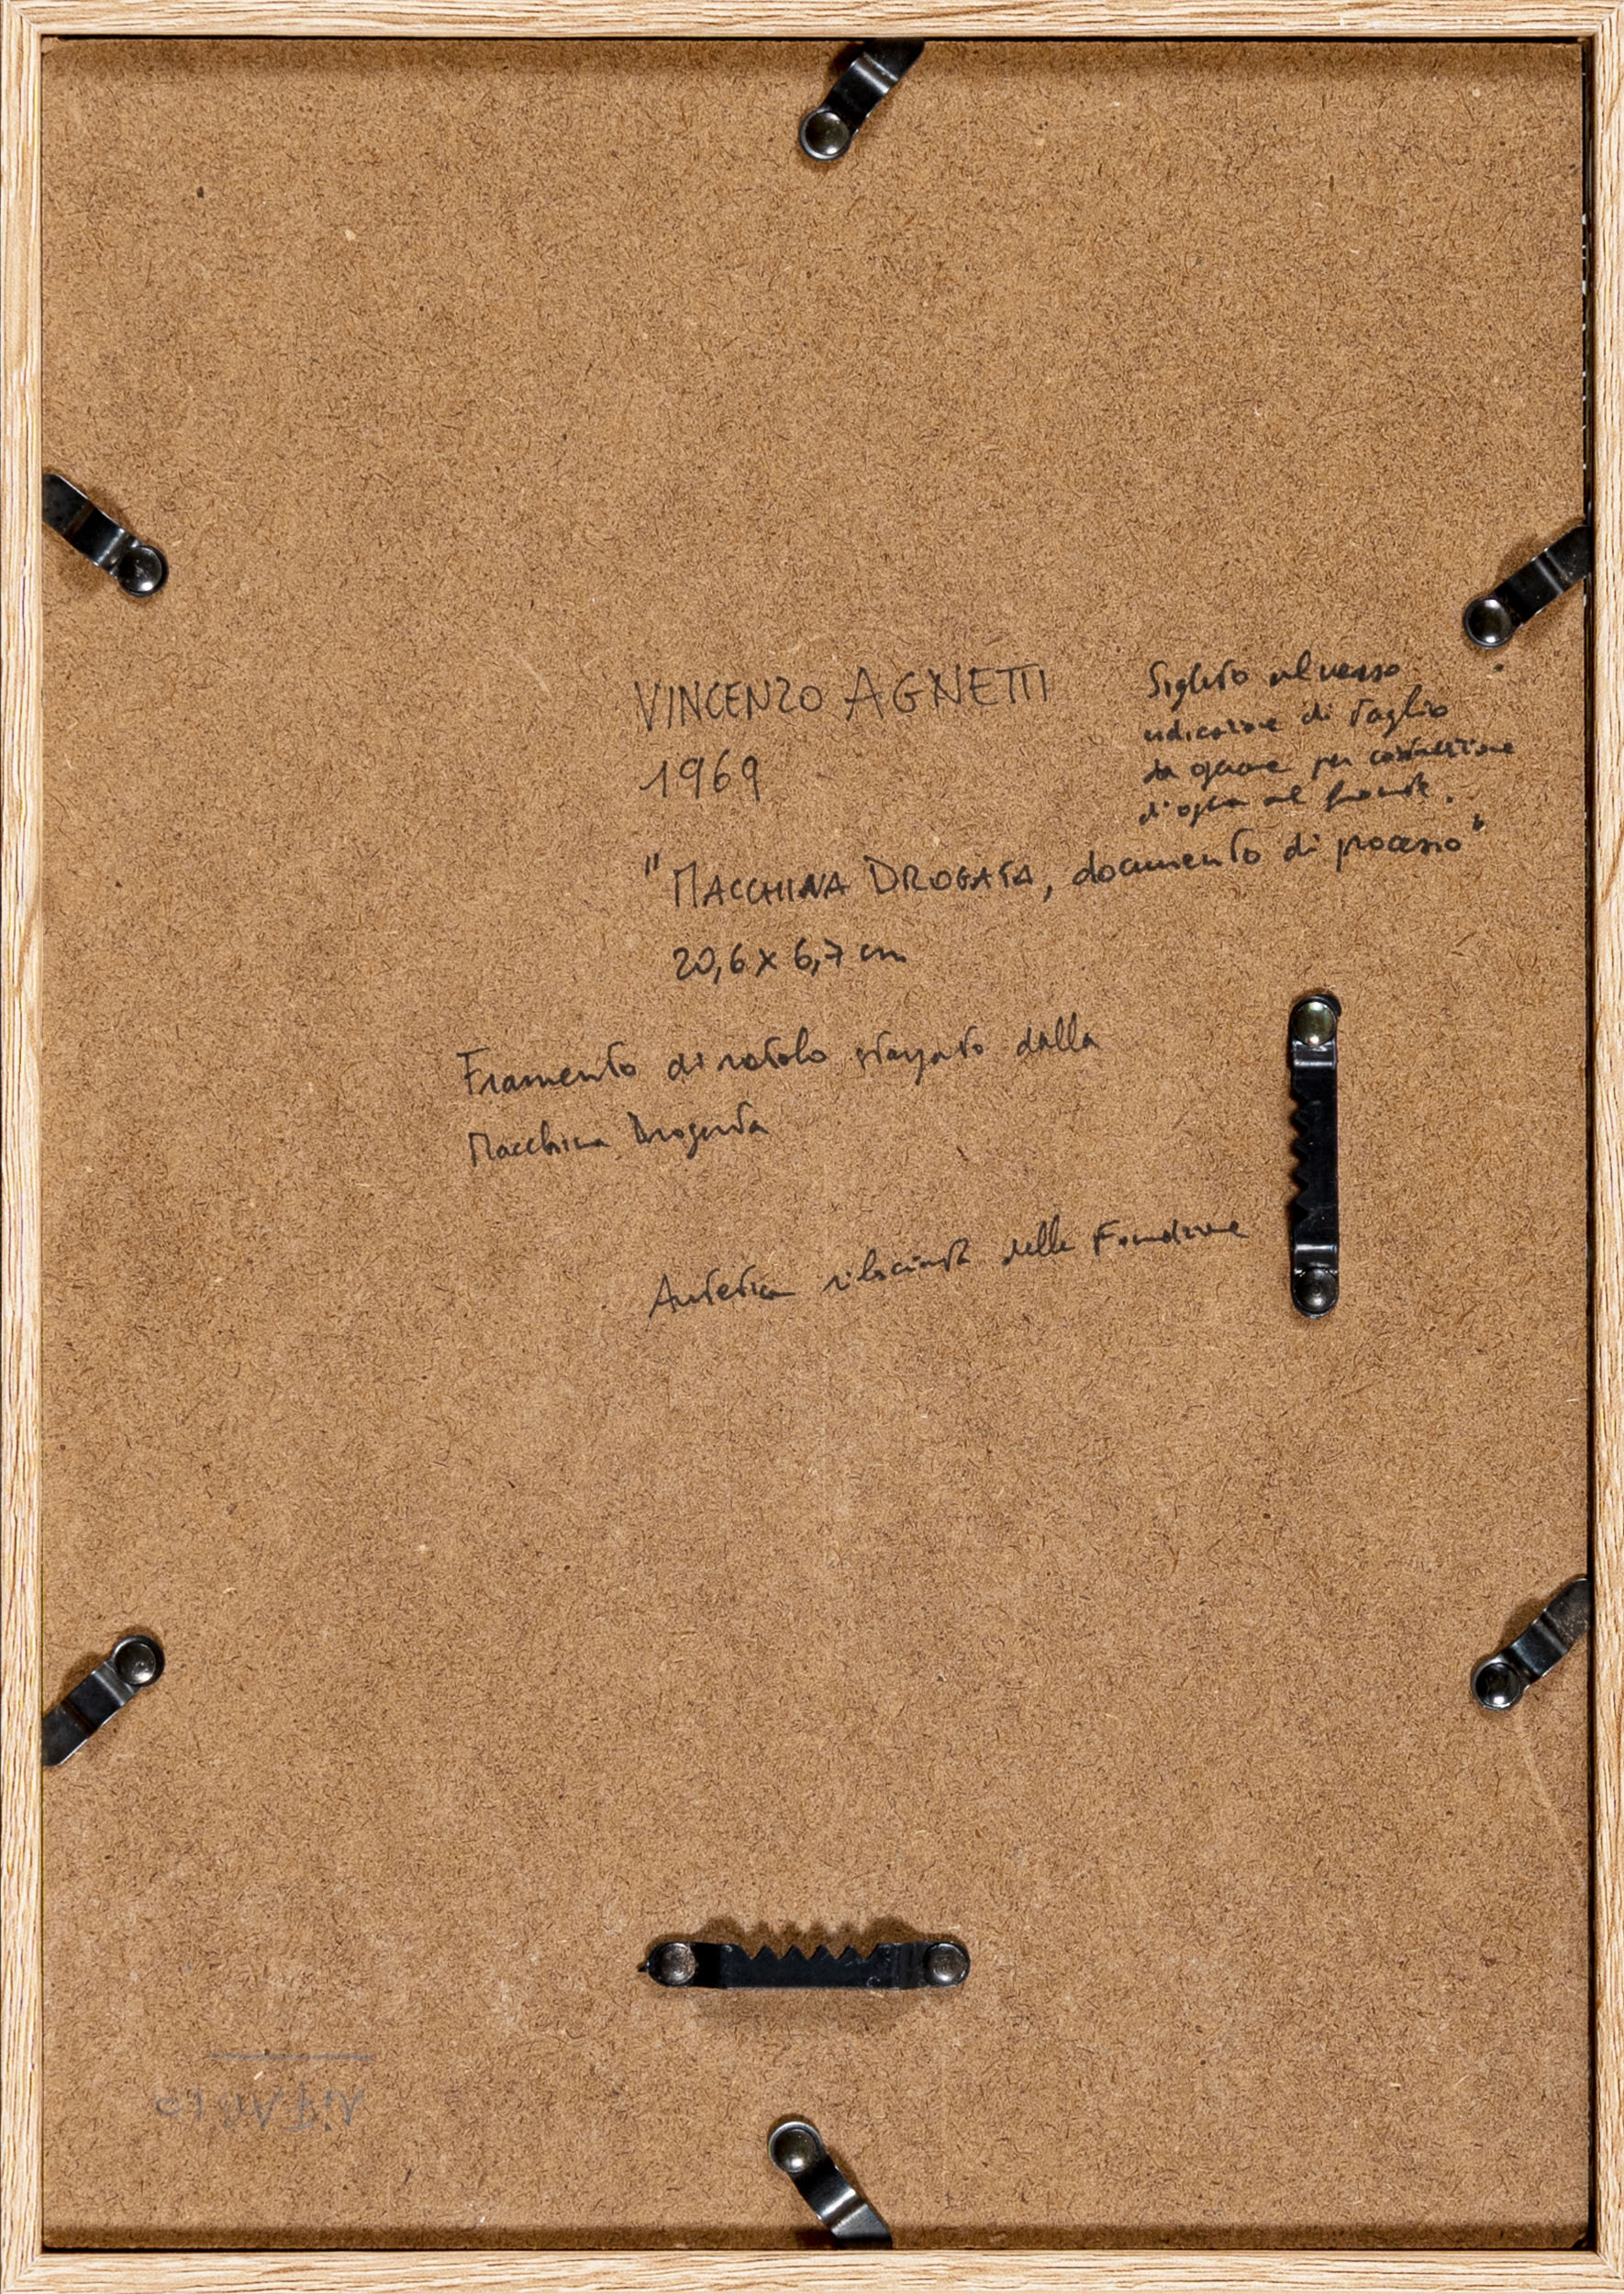 VINCENZO AGNETTI
1969
Siglato sul verso
indicazione di taglio
da per
al fronte.
"MACCHINA DROGATA, documento di processo"
20,6 x 6,7 cm
Framento di rotolo stampato dalla
Macchina Drogata
Autentica rilasciata dalla Fondazione